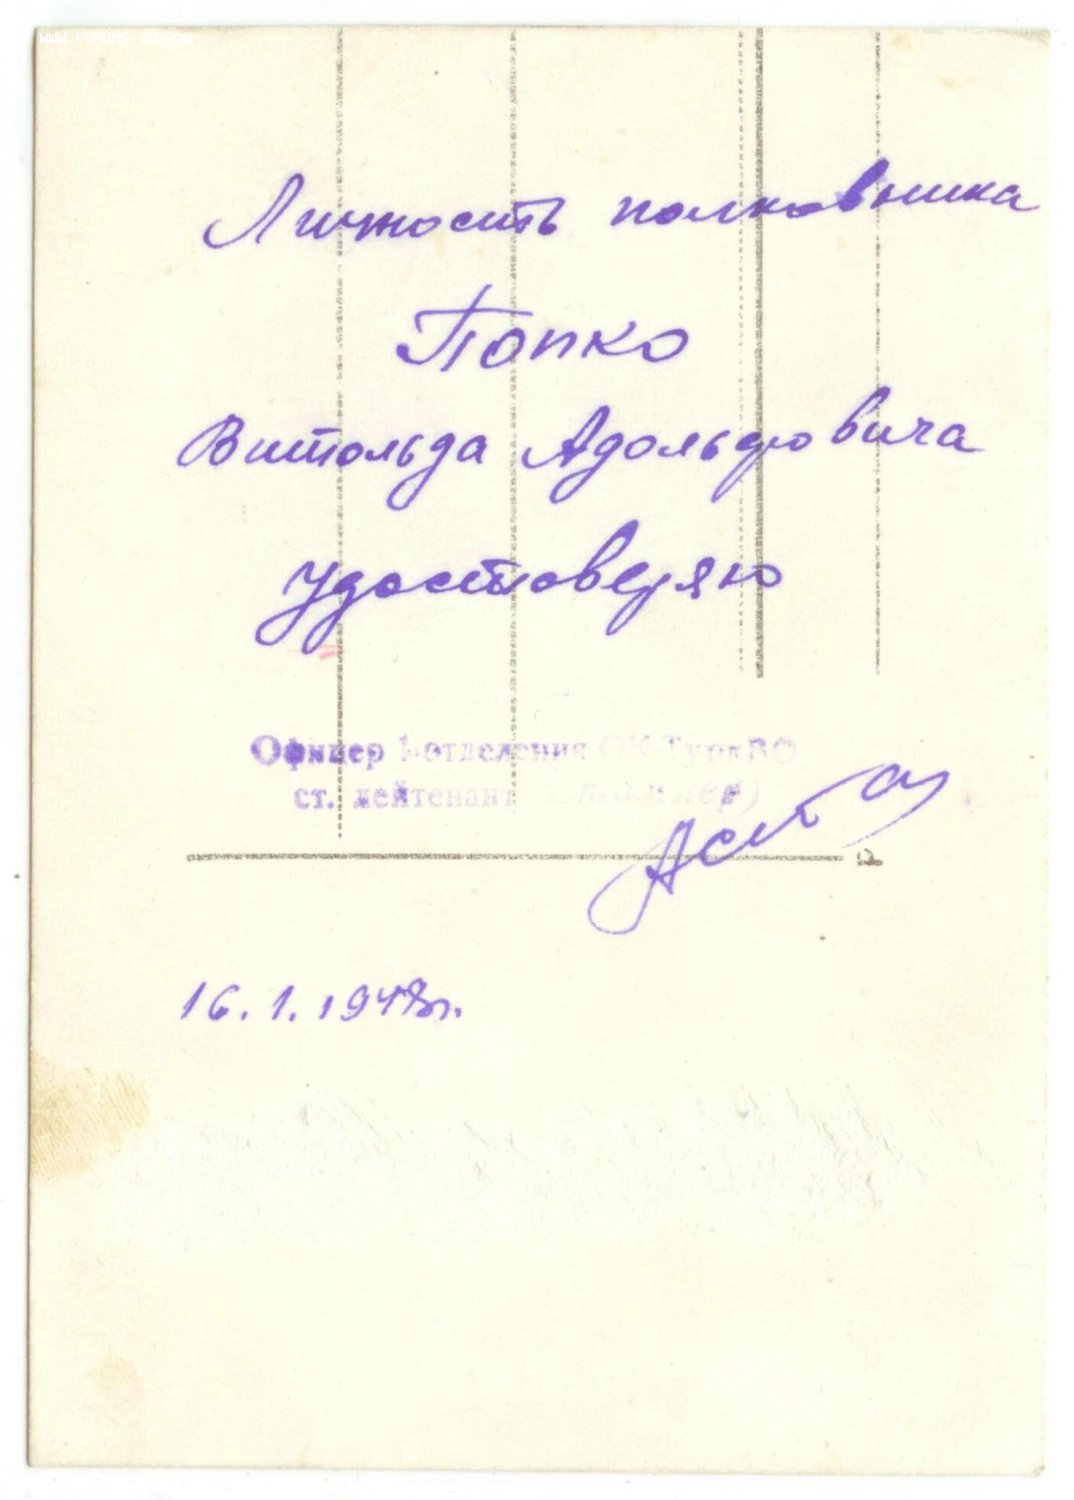 WWW.FORUMSPSR.COM
Личность полковника
Попко
Витольда Адольфовича
удостоверяю
Офицер 1 отделения ОК ТуркВО
ст. лейтенант
16.1.1948г.